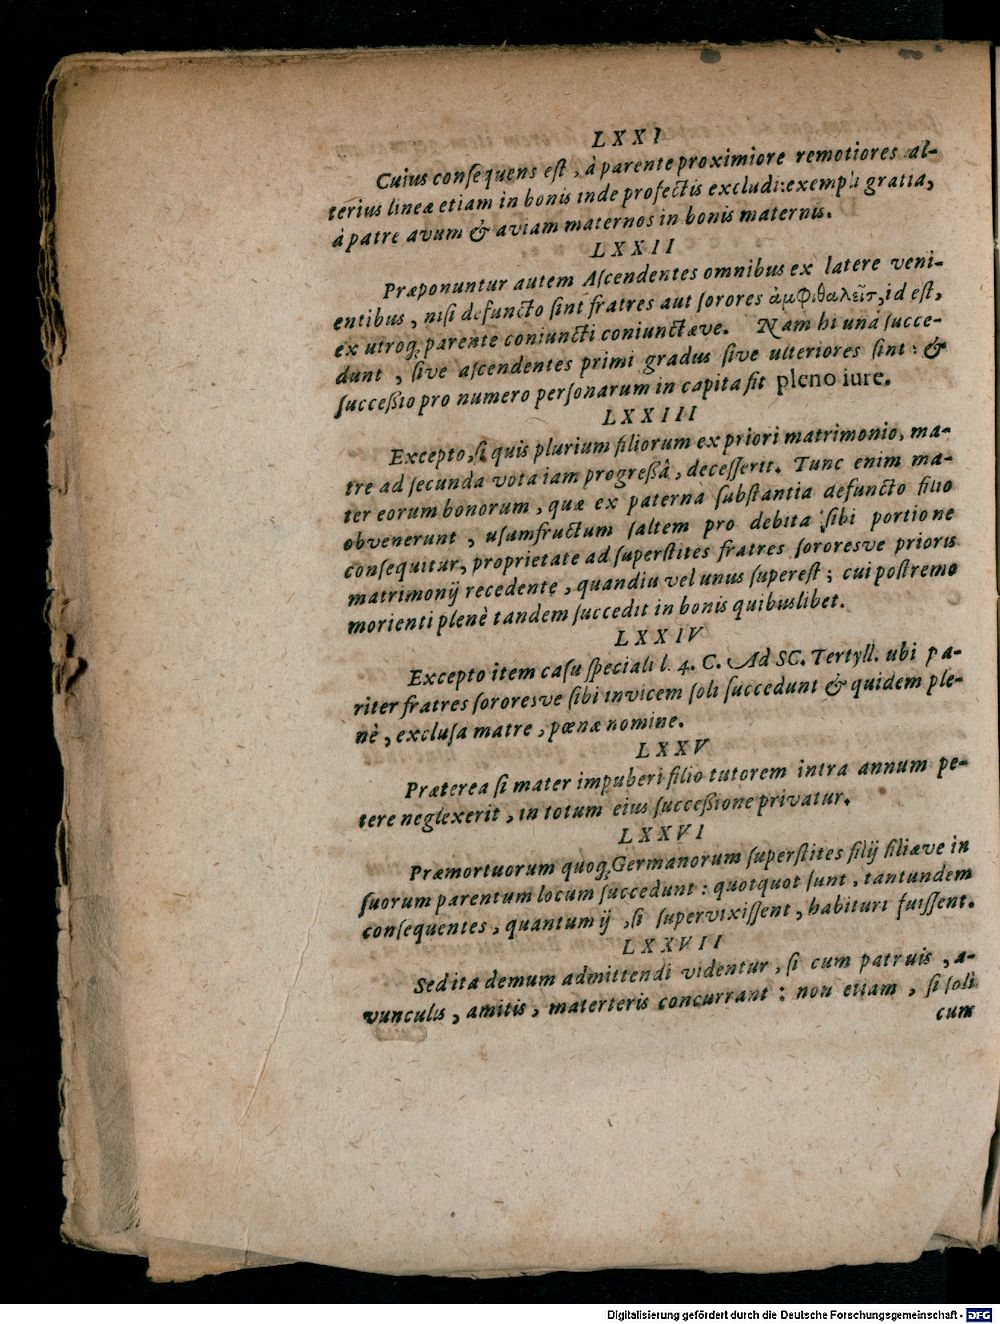 LXXI
Cuius consequens est, à parente proximiore remotiores al-
terius lineæ etiam in bonis inde profectis excludi: exempli gratia,
à patre avum & aviam maternos in bonis maternis.
LXXII
Præponuntur autem Ascendentes omnibus ex latere veni-
entibus, nisi defuncto sint fratres aut sorores ἀμφιθαλεῖς, id est,
ex utroq; parente coniuncti coniunctæve. Nam hi unà succe-
dunt, sive ascendentes primi gradus sive ulteriores sint: &
successio pro numero personarum in capita fit pleno iure.
LXXIII
Excepto, si quis plurium filiorum ex priori matrimonio, ma-
tre ad secunda vota iam progressâ, decesserit. Tunc enim ma-
ter eorum bonorum, quæ ex paterna substantia defuncto filio
obvenerunt, usumfructum saltem pro debita sibi portione
consequitur, proprietate ad superstites fratres sororesve prioris
matrimonij recedente, quandiu vel unus superest; cui postremo
morienti plenè tandem succedit in bonis quibuslibet.
LXXIV
Excepto item casu speciali l. 4. C. Ad SC. Tertyll. ubi pa-
riter fratres sororesve sibi invicem soli succedunt & quidem ple-
nè, exclusa matre, pœnæ nomine.
LXXV
Præterea si mater impuberi filio tutorem intra annum pe-
tere neglexerit, in totum eius successione privatur.
LXXVI
Præmortuorum quoq; Germanorum superstites filij filiæve in
suorum parentum locum succedunt: quotquot sunt, tantundem
consequentes, quantum ij, si supervixissent, habituri fuissent.
LXXVII
Sed ita demum admittendi videntur, si cum patruis, a-
vunculis, amitis, materteris concurrant: non etiam, si soli
cum
Digitalisierung gefördert durch die Deutsche Forschungsgemeinschaft - DFG